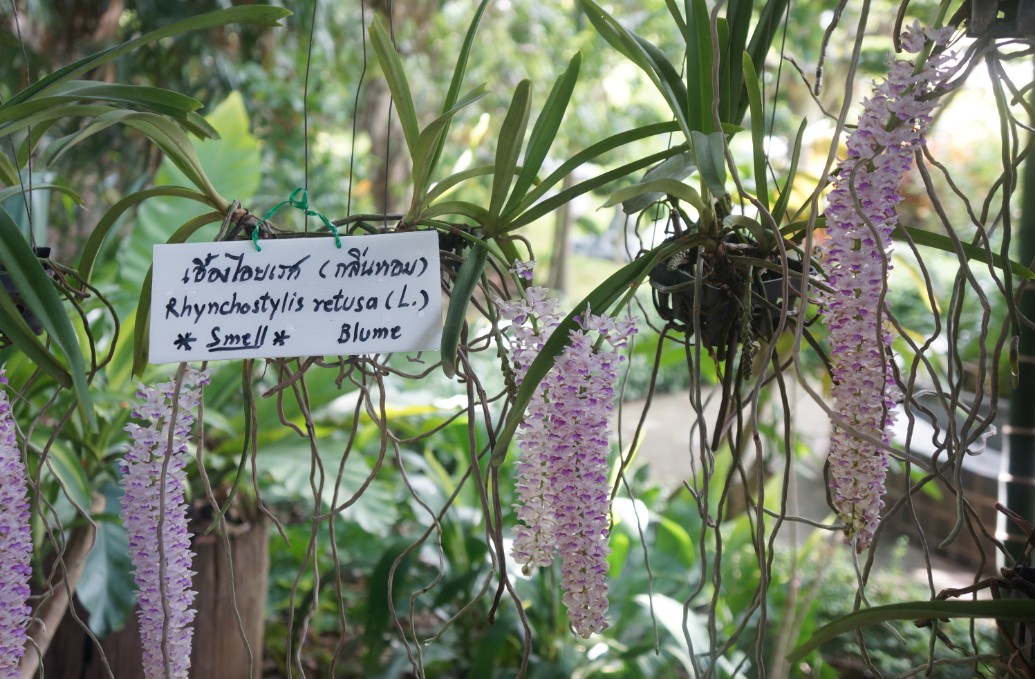 เอื้องไอยเรศ (กลิ่นหอม)
Rhynchostylis retusa (L.)
* Smell * Blume